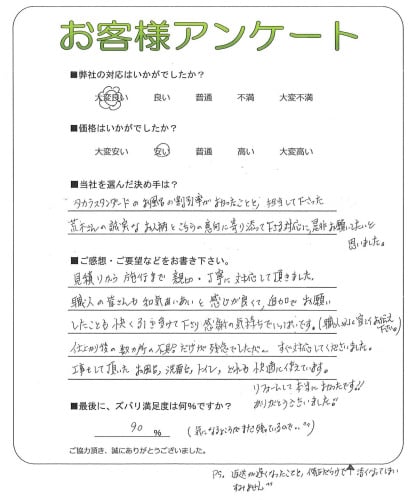 お客様アンケート
■弊社の対応はいかがでしたか?
大変良い 良い 普通 不満 大変不満
■価格はいかがでしたか?
大変安い 安い 普通 高い 大変高い
■当社を選んだ決め手は?
タカラスタンダードのお風呂の割引率が良かったことと、担当して下さった
荒木さんの誠実なお人柄とこちらの意向に寄り添って下さる対応に、是非お願いしたいと
思いました。
■ご感想・ご要望などをお書き下さい。
見積りから施行まで親切・丁寧に対応して頂きました。
職人の皆さんも和気あいあいと感じが良くて、追加でお願い
したことも快く引き受けて下さり感謝の気持ちでいっぱいです。(職人さんに宜しくお伝え
下さい。)
仕上がり後の数か所の不具合だけが残念でしたが、すぐ対応してくださいました。
工事をして頂いたお風呂、洗面台、トイレ、どれも快適に使えています。
リフォームして本当に良かったです!!
ありがとうございました!
■最後に、ズバリ満足度は何%ですか?
90 % (気になるところがまだ残っているので…)
ご協力頂き、誠にありがとうございました。
PS. 返送が遅くなったことと、修正だらけで汚くなってしまい
すみません